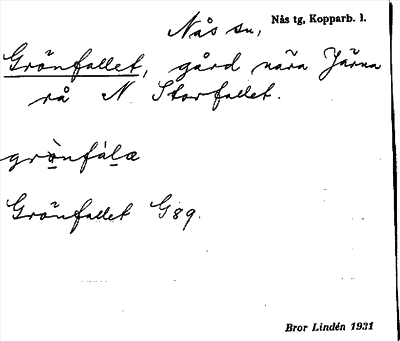 Nås sn, Nås tg, Kopparb. l.
Grönfallet, gård nära Järna
rå N. Storfallet.
grö̀nfál̲æ
Grönfallet G89.
Bror Lindén 1931